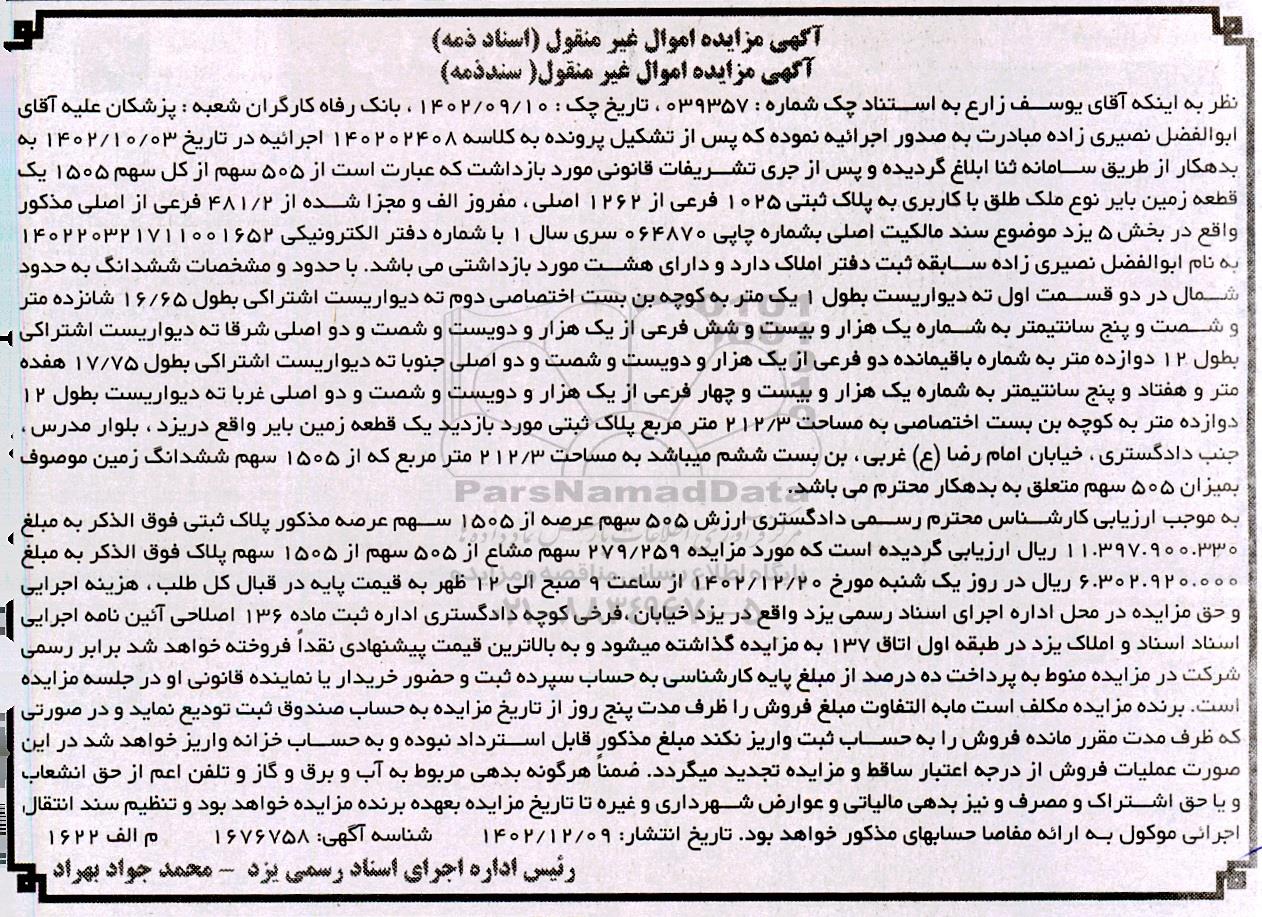 آگهی مزایده اموال غیر منقول (اسناد ذمه)
آگهی مزایده اموال غیر منقول( سندذمه)
نظر به اینکه آقای یوسف زارع به استناد چک شماره : ۰۳۹۳۵۷ ، تاریخ چک : ۱۴۰۲/۰۹/۱۰ ، بانک رفاه کارگران شعبه : پزشکان علیه آقای
ابوالفضل نصیری زاده مبادرت به صدور اجرائیه نموده که پس از تشکیل پرونده به کلاسه ۱۴۰۲۰۲۴۰۸ اجرائیه در تاریخ ۱۴۰۲/۱۰/۰۳ به
بدهکار از طریق سامانه ثنا ابلاغ گردیده و پس از جری تشریفات قانونی مورد بازداشت که عبارت است از ۵۰۵ سهم از کل سهم ۱۵۰۵ یک
قطعه زمین بایر نوع ملک طلق با کاربری به پلاک ثبتی ۱۰۲۵ فرعی از ۱۲۶۲ اصلی ، مفروز الف و مجزا شده از ۴۸۱/۲ فرعی از اصلی مذکور
واقع در بخش ۵ یزد موضوع سند مالکیت اصلی بشماره چاپی ۰۶۴۸۷۰ سری سال ۱ با شماره دفتر الکترونیکی ۱۴۰۲۲۰۳۲۱۷۱۱۰۰۱۶۵۲
به نام ابوالفضل نصیری زاده سابقه ثبت دفتر املاک دارد و دارای هشت مورد بازداشتی می باشد. با حدود و مشخصات ششدانگ به حدود
شمال در دو قسمت اول ته دیواریست بطول ۱ یک متر به کوچه بن بست اختصاصی دوم ته دیواریست اشتراکی بطول ۱۶/۶۵ شانزده متر
و شصت و پنج سانتیمتر به شماره یک هزار و بیست و شش فرعی از یک هزار و دویست و شصت و دو اصلی شرقا ته دیواریست اشتراکی
بطول ۱۲ دوازده متر به شماره باقیمانده دو فرعی از یک هزار و دویست و شصت و دو اصلی جنوبا ته دیواریست اشتراکی بطول ۱۷/۷۵ هفده
متر و هفتاد و پنج سانتیمتر به شماره یک هزار و بیست و چهار فرعی از یک هزار و دویست و شصت و دو اصلی غربا ته دیواریست بطول ۱۲
دوازده متر به کوچه بن بست اختصاصی به مساحت ۲۱۲/۳ متر مربع پلاک ثبتی مورد بازدید یک قطعه زمین بایر واقع دریزد ، بلوار مدرس ،
جنب دادگستری ، خیابان امام رضا (ع) غربی ، بن بست ششم میباشد به مساحت ۲۱۲/۳ متر مربع که از ۱۵۰۵ سهم ششدانگ زمین موصوف
بمیزان ۵۰۵ سهم متعلق به بدهکار محترم می باشد.
به موجب ارزیابی کارشناس محترم رسمی دادگستری ارزش ۵۰۵ سهم عرصه از ۱۵۰۵ سهم عرصه مذکور پلاک ثبتی فوق الذکر به مبلغ
۱۱.۳۹۷.۹۰۰.۳۳۰ ریال ارزیابی گردیده است که مورد مزایده ۲۷۹/۲۵۹ سهم مشاع از ۵۰۵ سهم از ۱۵۰۵ سهم پلاک فوق الذکر به مبلغ
۶.۳۰۲.۹۲۰.۰۰۰ ریال در روز یک شنبه مورخ ۱۴۰۲/۱۲/۲۰ از ساعت ۹ صبح الی ۱۲ ظهر به قیمت پایه در قبال کل طلب ، هزینه اجرایی
و حق مزایده در محل اداره اجرای اسناد رسمی یزد واقع در یزد خیابان ،فرخی کوچه دادگستری اداره ثبت ماده ۱۳۶ اصلاحی آئین نامه اجرایی
اسناد اسناد و املاک یزد در طبقه اول اتاق ۱۳۷ به مزایده گذاشته میشود و به بالاترین قیمت پیشنهادی نقداً فروخته خواهد شد برابر رسمی
شرکت در مزایده منوط به پرداخت ده درصد از مبلغ پایه کارشناسی به حساب سپرده ثبت و حضور خریدار یا نماینده قانونی او در جلسه مزایده
است. برنده مزایده مکلف است مابه التفاوت مبلغ فروش را ظرف مدت پنج روز از تاریخ مزایده به حساب صندوق ثبت تودیع نماید و در صورتی
که ظرف مدت مقرر مانده فروش را به حساب ثبت واریز نکند مبلغ مذکور قابل استرداد نبوده و به حساب خزانه واریز خواهد شد در این
صورت عملیات فروش از درجه اعتبار ساقط و مزایده تجدید میگردد. ضمناً هرگونه بدهی مربوط به آب و برق و گاز و تلفن اعم از حق انشعاب
و یا حق اشتراک و مصرف و نیز بدهی مالیاتی و عوارض شهرداری و غیره تا تاریخ مزایده بعهده برنده مزایده خواهد بود و تنظیم سند انتقال
اجرائی موکول به ارائه مفاصا حسابهای مذکور خواهد بود. تاریخ انتشار: ۱۴۰۲/۱۲/۰۹ شناسه آگهی: ۱۶۷۶۷۵۸ م الف ۱۶۲۲
رئیس اداره اجرای اسناد رسمی یزد - محمد جواد بهراد
ParsNamadData